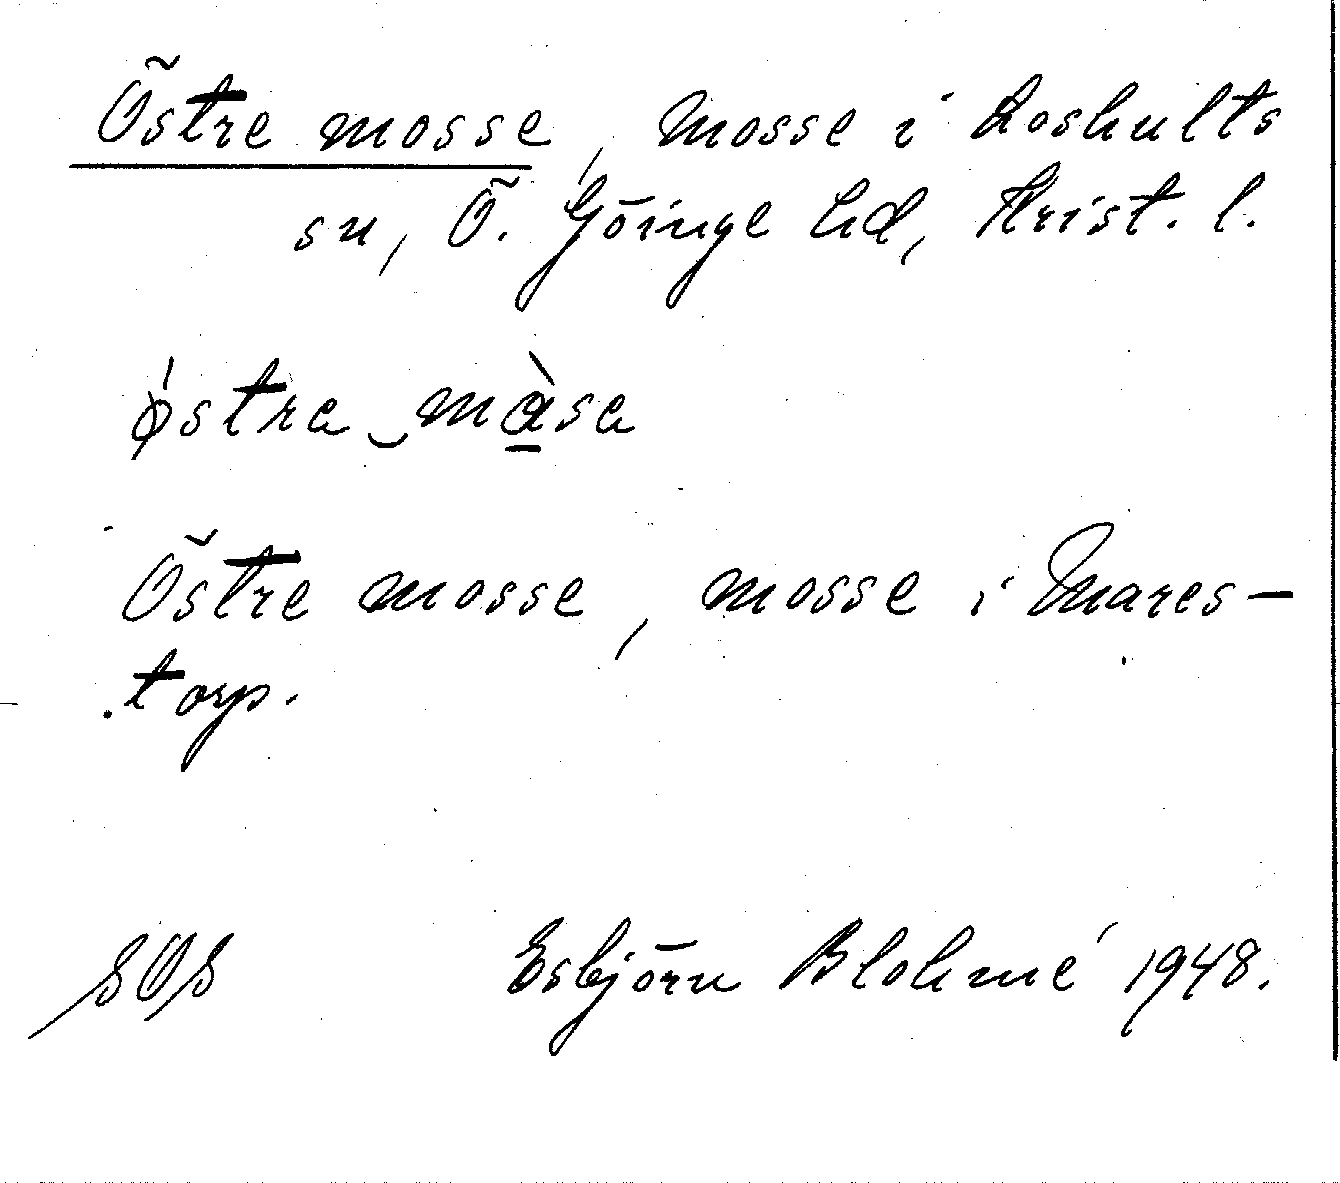 Östre mosse, mosse i Loshults
sn, Ö. Göinge hd, Krist. l.
ǿstra ‿ mà̲sa
Östre mosse, mosse i Mares-
torp.
SOS Esbjörn Blohmé 1948.